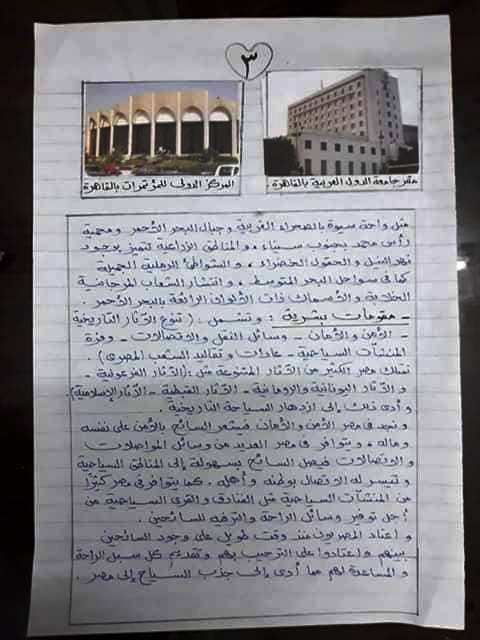 ٣
المركز الدولى للمؤتمرات بالقاهرة
مقر جامعة الدول العربية بالقاهرة .
مثل واحة سيوة بالصحراء الغربية و جبال البحر الأحمر و محمية
رأس محمد بجنوب سيناء ، و المناطق الزراعية تتميز بوجود
نهر النيل و الحقول الخضراء ، و الشواطئ الرملية الجميلة
كما فى سواحل البحر المتوسط ، و انتشار الشعاب المرجانية
الخلابة و الأسماك ذات الألوان الرائعة بالبحر الأحمر .
- مقومات بشرية : و تشمل : ( تنوع الآثار التاريخية
- الأمن و الأمان - وسائل النقل و الاتصالات - وفرة
المنشآت السياحية - عادات و تقاليد الشعب المصرى ) .
تمتلك مصر الكثير من الآثار المتنوعة مثل : ( الآثار الفرعونية -
و الآثار اليونانية و الرومانية - الآثار القبطية - الآثار الإسلامية )
و أدى ذلك إلى ازدهار السياحة التاريخية .
و نجد فى مصر الأمن و الأمان فيشعر السائح بالأمن على نفسه
و ماله ، و يتوافر فى مصر العديد من وسائل المواصلات
و الاتصالات فيصل السائح بسهولة إلى المناطق السياحية
و تيسير له الاتصال بوطنه و أهله . كما يتوافر فى مصر كثيرًا
من المنشآت السياحية مثل الفنادق و القرى السياحية من
أجل توفير وسائل الراحة و الترفيه للسائحين .
و اعتاد المصريون منذ وقت طويل على وجود السائحين
بينهم و اعتادوا على الترحيب بهم و تقديم كل سبل الراحة
و المساعدة لهم مما أدى إلى جذب السياح إلى مصر .